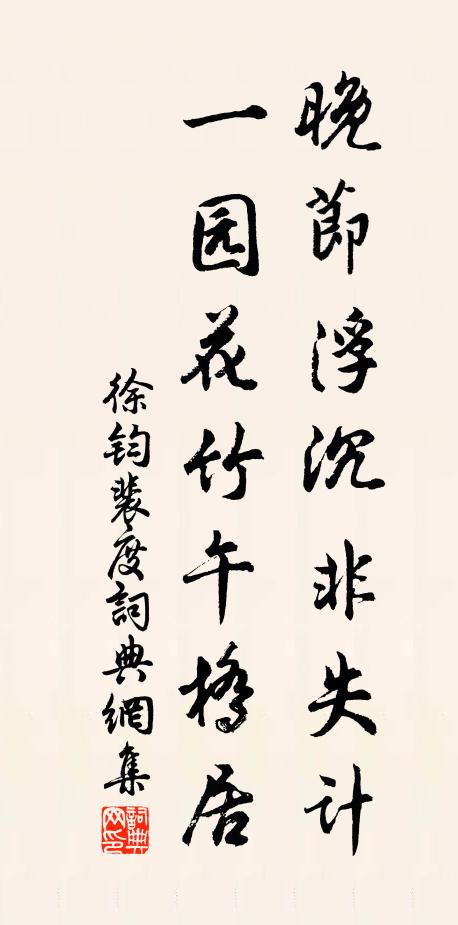 晚節浮沉非失计
一园花竹午橋居
徐鈞裴度詞典網集
詞典網印